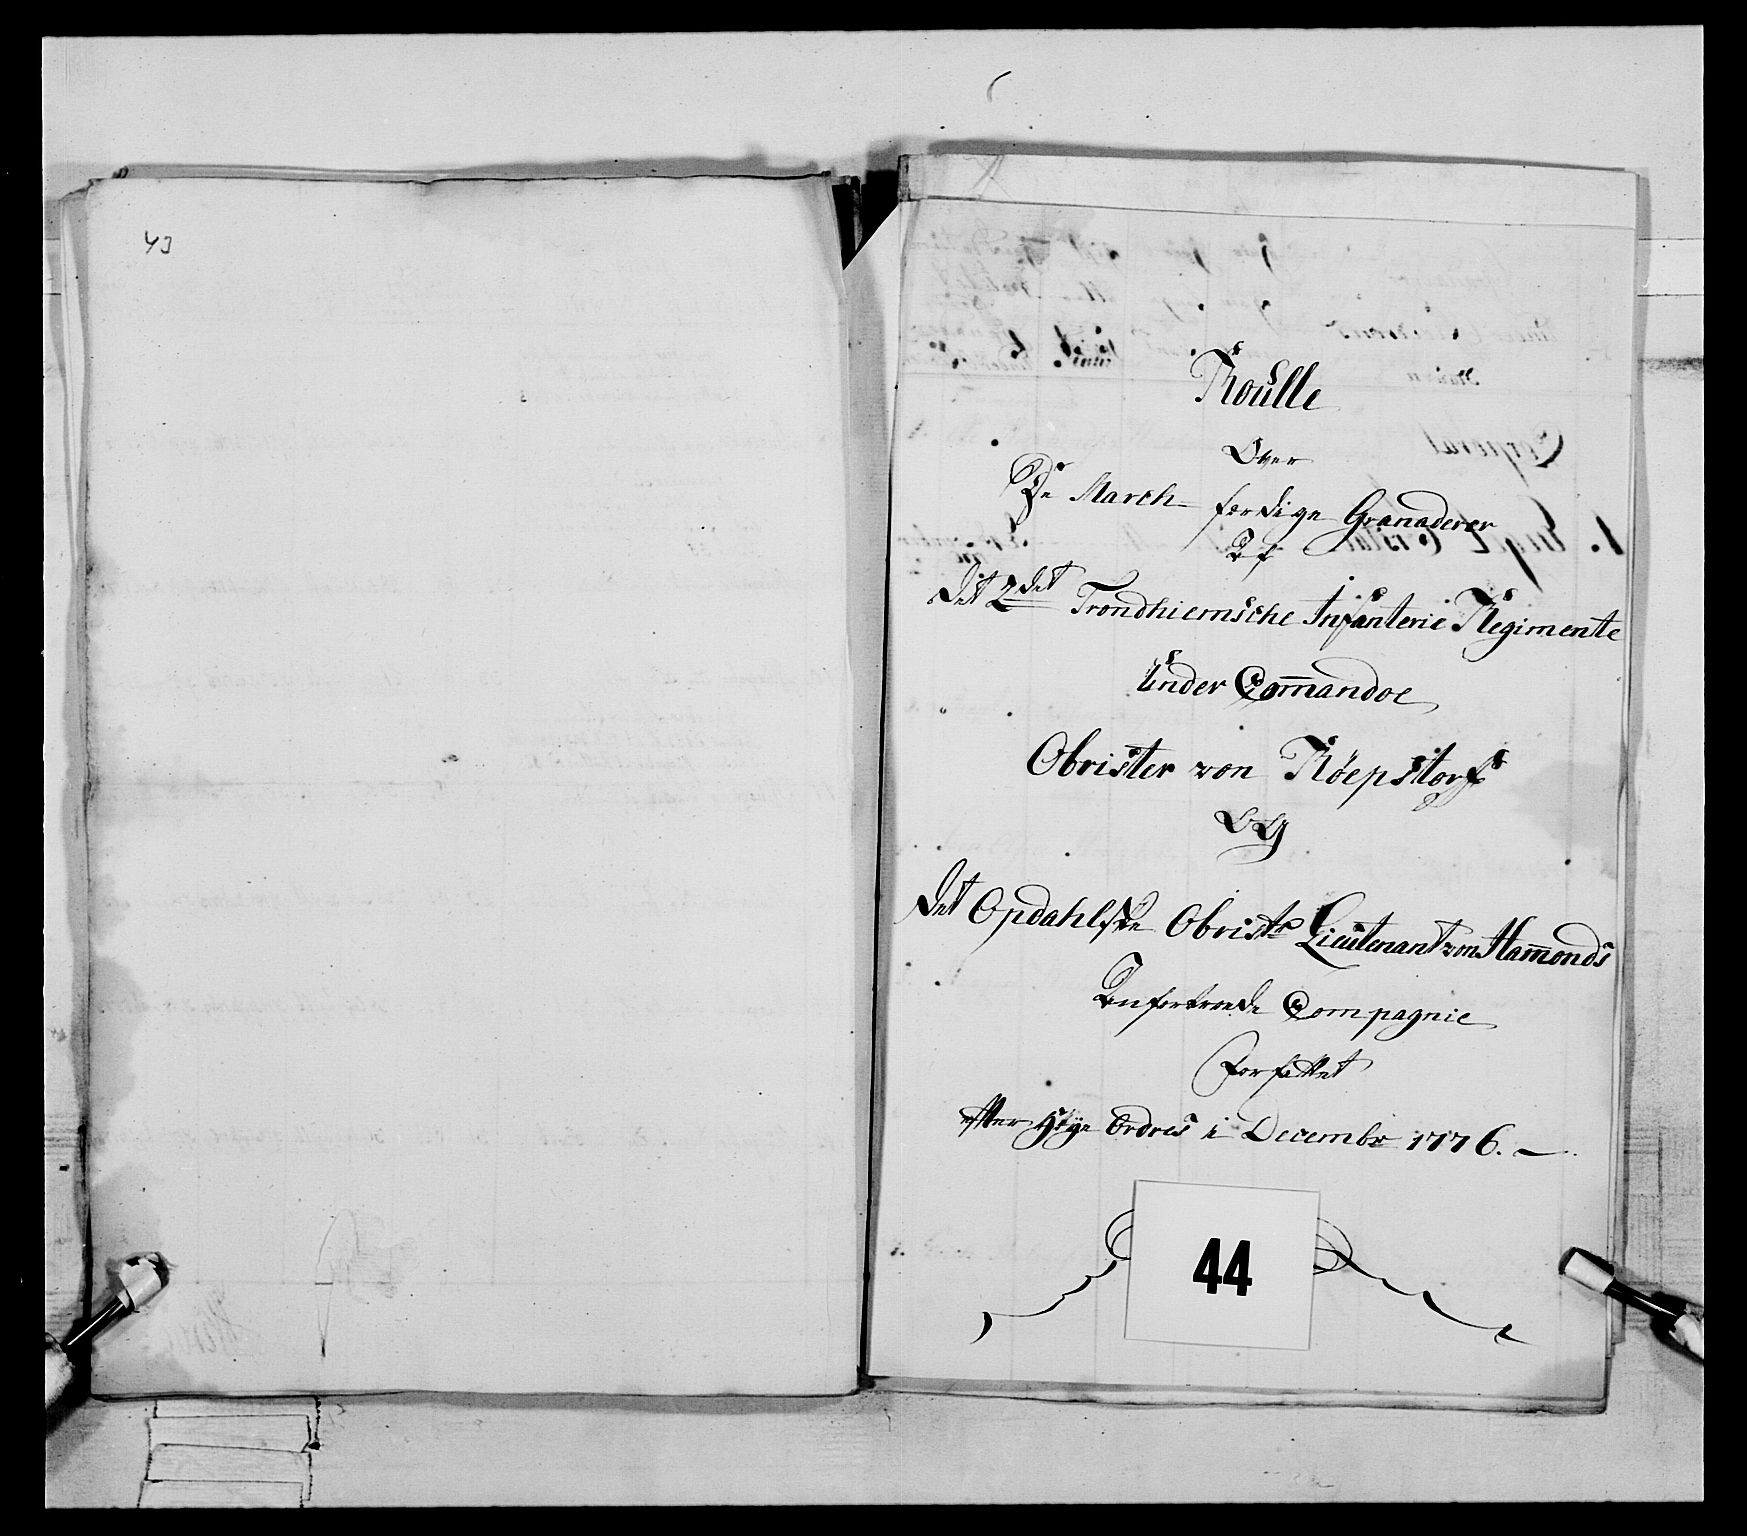 43
Roulle
Over
De March færdige Granaderer
Af
Det 2det Trondhiemsche Infanterie Regimente
Under Commandoe
Obrister von Röepstorf
og
Det Opdahlske Obrist Lieutenant von Hammonds
Anfortroede Compagnie
Forfattet
efter Ordres i Decembr 1776.
44